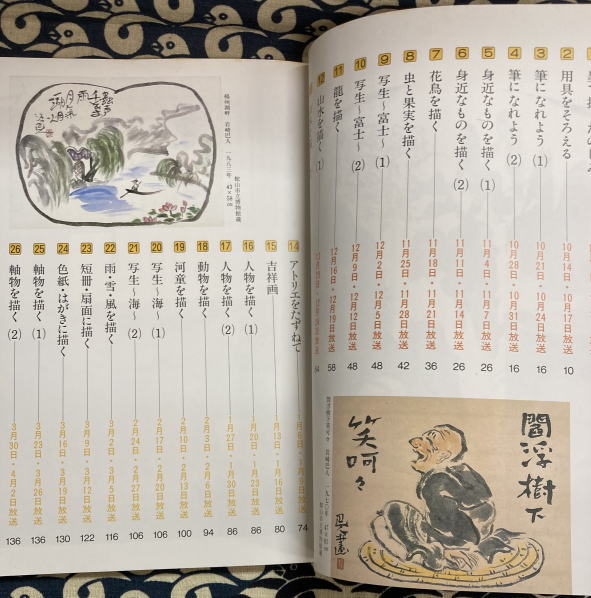 用具をそろえる 10月14日・10月17日放送 10
3 筆になれよう(1) 10月21日・10月24日放送 16
4 筆になれよう(2) 10月28日・10月31日放送 16
5 身近なものを描く(1) 11月4日・11月7日放送 26
6 身近なものを描く(2) 11月11日・11月14日放送 26
7 花鳥を描く 11月18日・11月21日放送 36
8 虫と果実を描く 11月25日・11月28日放送 42
9 写生〜富士〜(1) 12月2日・12月5日放送 48
10 写生〜富士〜(2) 12月9日・12月12日放送 48
11 龍を描く 12月16日・12月19日放送 58
12 山水を描く(1)
閻浮樹下
笑呵々
14 アトリエをたずねて 1月6日・1月9日放送 74
15 吉祥画 1月13日・1月16日放送 80
16 人物を描く(1) 1月20日・1月23日放送 86
17 人物を描く(2) 1月27日・1月30日放送 86
18 動物を描く 2月3日・2月6日放送 94
19 河童を描く 2月10日・2月13日放送 100
20 写生〜海〜(1) 2月17日・2月20日放送 106
21 写生〜海〜(2) 2月24日・2月27日放送 106
22 雨・雪・風を描く 3月2日・3月5日放送 116
23 短冊・扇面に描く 3月9日・3月12日放送 122
24 色紙・はがきに描く 3月16日・3月19日放送 130
25 軸物を描く(1) 3月23日・3月26日放送 136
26 軸物を描く(2) 3月30日・4月2日放送 136
楊州湖畔 岩崎巴人 一九八二年 43×58cm
館山市立博物館蔵